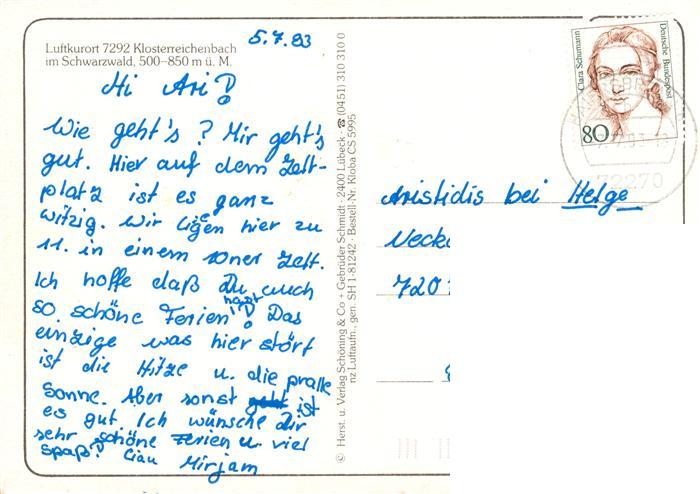 Luftkurort 7292 Klosterreichenbach
im Schwarzwald, 500–850 m ü. M.
5.7.93
Hi Ari!
Wie geht's? Mir geht's
gut. Hier auf dem Zelt-
platz ist es ganz
witzig. Wir liegen hier zu
11. in einem 10ner Zelt.
Ich hoffe daß Du auch
so schöne Ferien hast! Das
einzige was hier stört
ist die Hitze u. die pralle
Sonne. Aber sonst ist
es gut. Ich wünsche dir
sehr schöne Ferien u. viel
Spaß! Ciau Mirjam
© Herst. u. Verlag Schöning & Co + Gebrüder Schmidt · 2400 Lübeck · ☎ (0451) 310 310 0
nz Luftaufn., gen. SH 1-81242 · Bestell-Nr. Kloba CS 5995
Clara Schumann
Deutsche Bundespost
80
72270
Aristidis bei Helge
Necka
7201